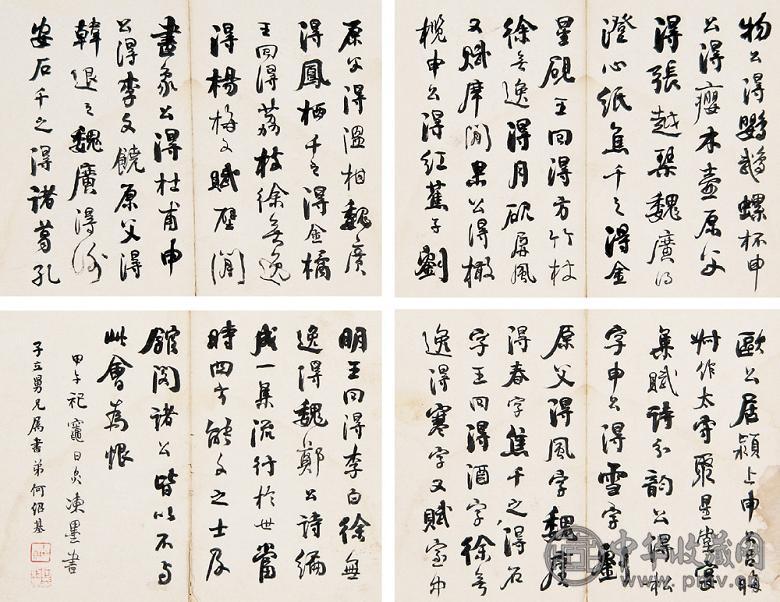 歐公居潁上申公呂晦
叔作太守聚星堂宴
集賦詩分韻公得松
字申公得雪字劉
原父得風字魏廣
得春字焦千之得石
字王回得酒字徐無
逸得寒字又賦室中
物公得鸚鵡螺杯申
公得癭木壺原父
得張越琴魏廣得
澄心紙焦千之得金
星硯王回得方竹杖
徐無逸得月硯屏風
又賦席間果公得橄
欖申公得紅蕉子劉
原父得溫柑魏廣
得鳳栖千之得金橘
王回得荔枝徐無逸
得楊梅又賦壁間
畫象公得杜甫申
公得李文饒原父得
韓退之魏廣得謝
安石千之得諸葛孔
明王回得李白徐無
逸得魏鄭公詩編
成一集流行於世當
時四方能文之士及
館閣諸公皆以不与
此會為恨
甲午祀竈日炙凍墨書
子立男兄属書弟何紹基
中华收藏网